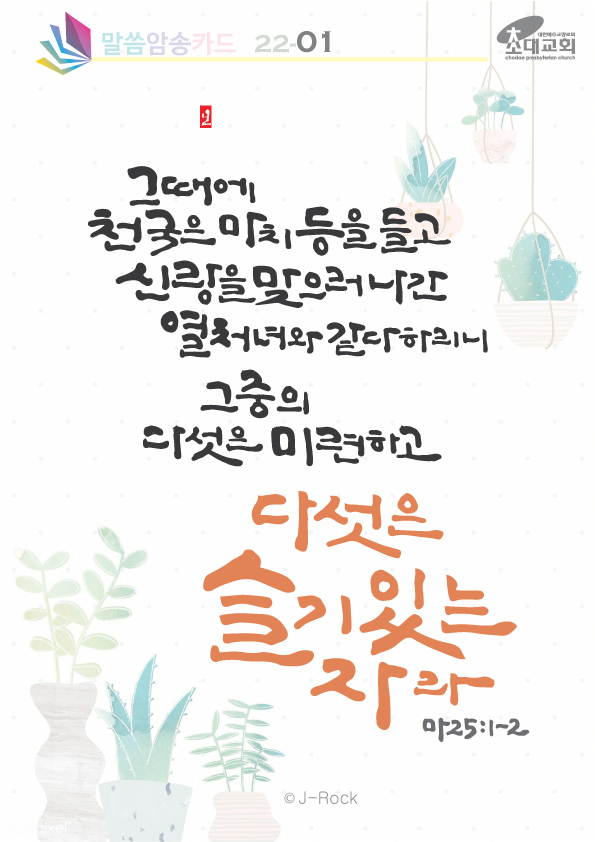 말씀암송카드 22-01
대한예수교장로회
초대교회
chodae presbyterian church
그때에
천국은 마치 등을 들고
신랑을 맞으러 나간
열 처녀와 같다 하리니
그 중의
다섯은 미련하고
다섯은
슬기 있는
자라
마25:1-2
© J-Rock